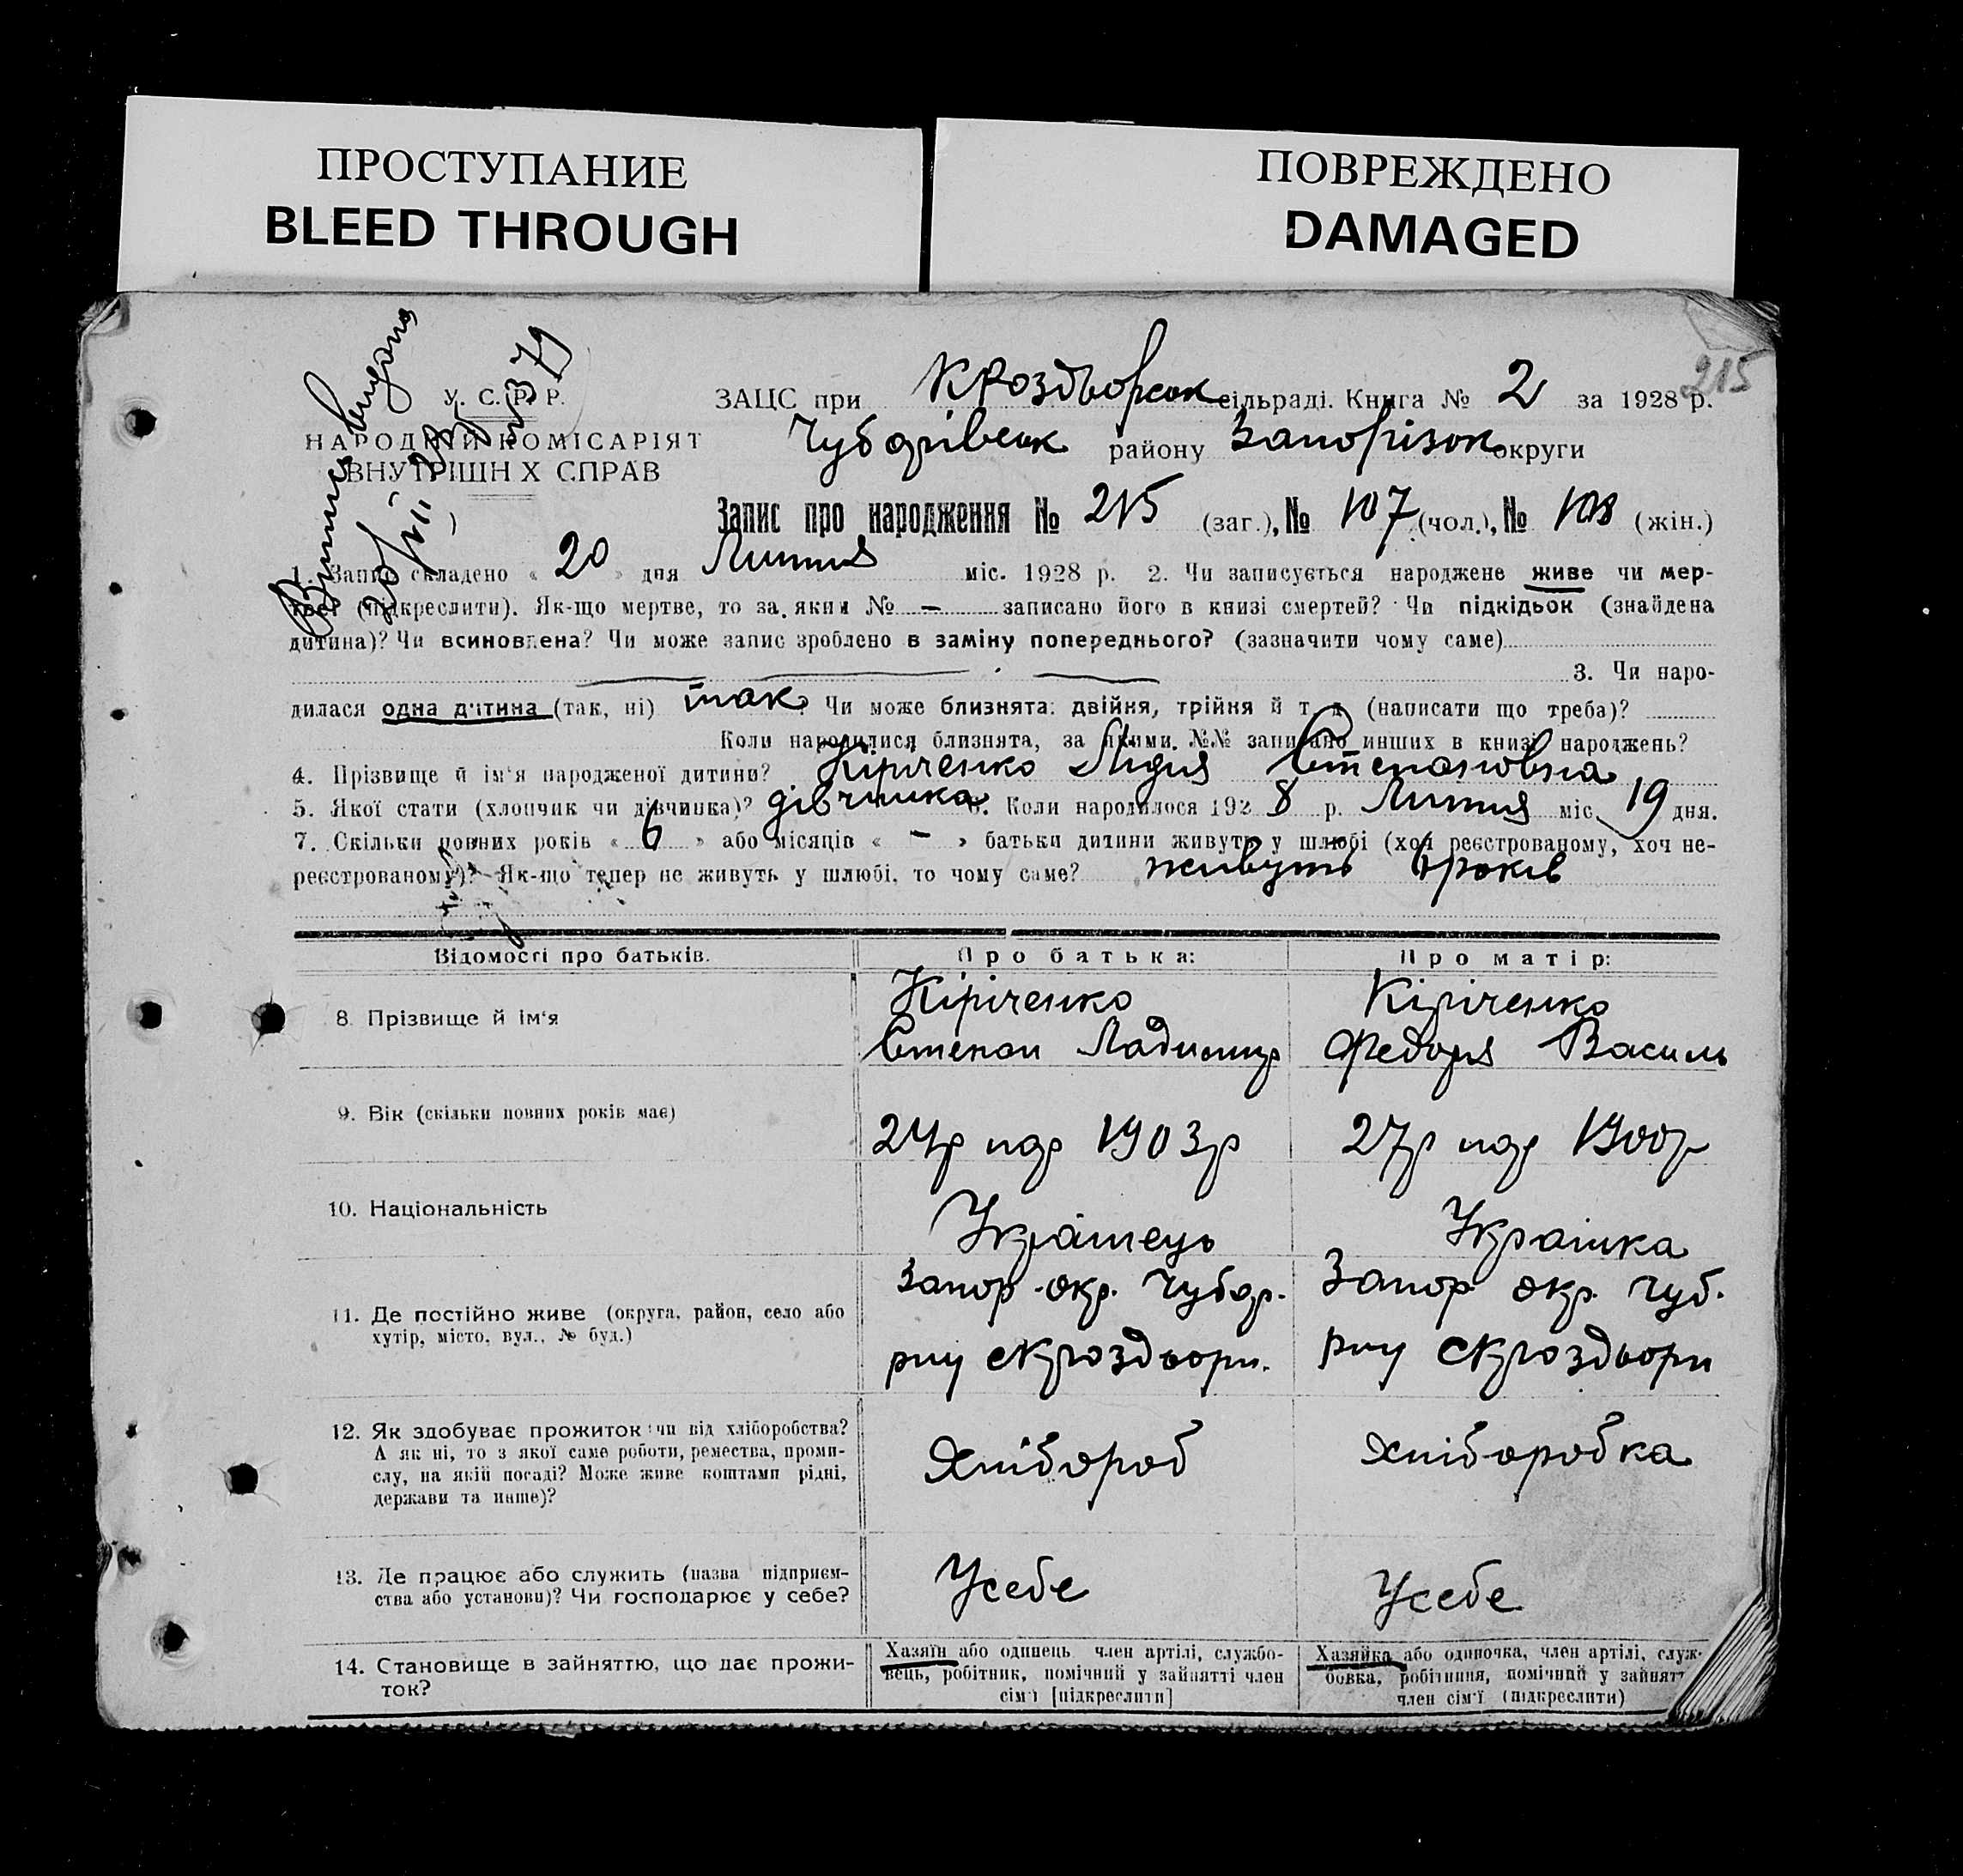 ПРОСТУПАНИЕ
BLEED THROUGH
ПОВРЕЖДЕНО
DAMAGED
215
У. С. Р. Р.
НАРОДНІЙ КОМІСАРІЯТ
ВНУТРІШН Х СПРАВ
ЗАЦС при КРоздворськ сільраді. Книга № 2 за 1928 р.
Чубарівськ району Запорізьк округи
Запис про народження № 215 (заг.), № 107 (чол.), № 108 (жін.)
1. Запис складено « 20 » дня Липня міс. 1928 р. 2. Чи записується народжене живе чи мер-
тве (підкреслити). Як-що мертве, то за яким № — записано його в книзі смертей? Чи підкідьок (знайдена
дитина)? Чи всиновлена? Чи може запис зроблено в заміну попереднього? (зазначити чому саме)
3. Чи наро-
дилася одна дитина (так, ні) так? Чи може близнята: двійня, трійня й т. д. (написати що треба)?
Коли народилися близнята, за якими №№ записано инших в книзі народжень?
4. Прізвище й ім'я народженої дитини? Кіріченко Лидия Степановна
5. Якої стати (хлопчик чи дівчинка)? дівчинка 6. Коли народилося 1928 р. Липня міс. 19 дня.
7. Скільки повних років « 6 » або місяців « – » батьки дитини живуть у шлюбі (хоч реєстрованому, хоч не-
реєстрованому)? Як-що тепер не живуть у шлюбі, то чому саме? живуть 6 років
Відомості про батьків. Про батька: Про матір:
8. Прізвище й ім'я Кіріченко Кіріченко
Степан Ладимир Федора Василь
9. Вік (скільки повних років має) 24р нар 1903р 27р нар 1900р
10. Національність Українець Українка
11. Де постійно живе (округа, район, село або
хутір, місто, вул., № буд.)
Запор. окр. Чубар. Запор окр. Чуб.
рну скроздвори. рну скроздвори
12. Як здобуває прожиток: чи від хліборобства?
А як ні, то з якої саме роботи, ремества, проми-
слу, на якій посаді? Може живе коштами рідні,
держави та инше)?
Хлібороб Хліборобка
13. Де працює або служить (назва підприєм-
ства або установи)? Чи господарює у себе?
Усебе Усебе
14. Становище в зайняттю, що дає прожи-
ток?
Хазяїн або одинець член артілі, службо-
вець, робітник, помічний у зайнятті член
сім'ї [підкреслити]
Хазяйка або одиночка, член артілі, служ-
бовка, робітниця, помічний у зайнятт
член сім'ї (підкреслити)